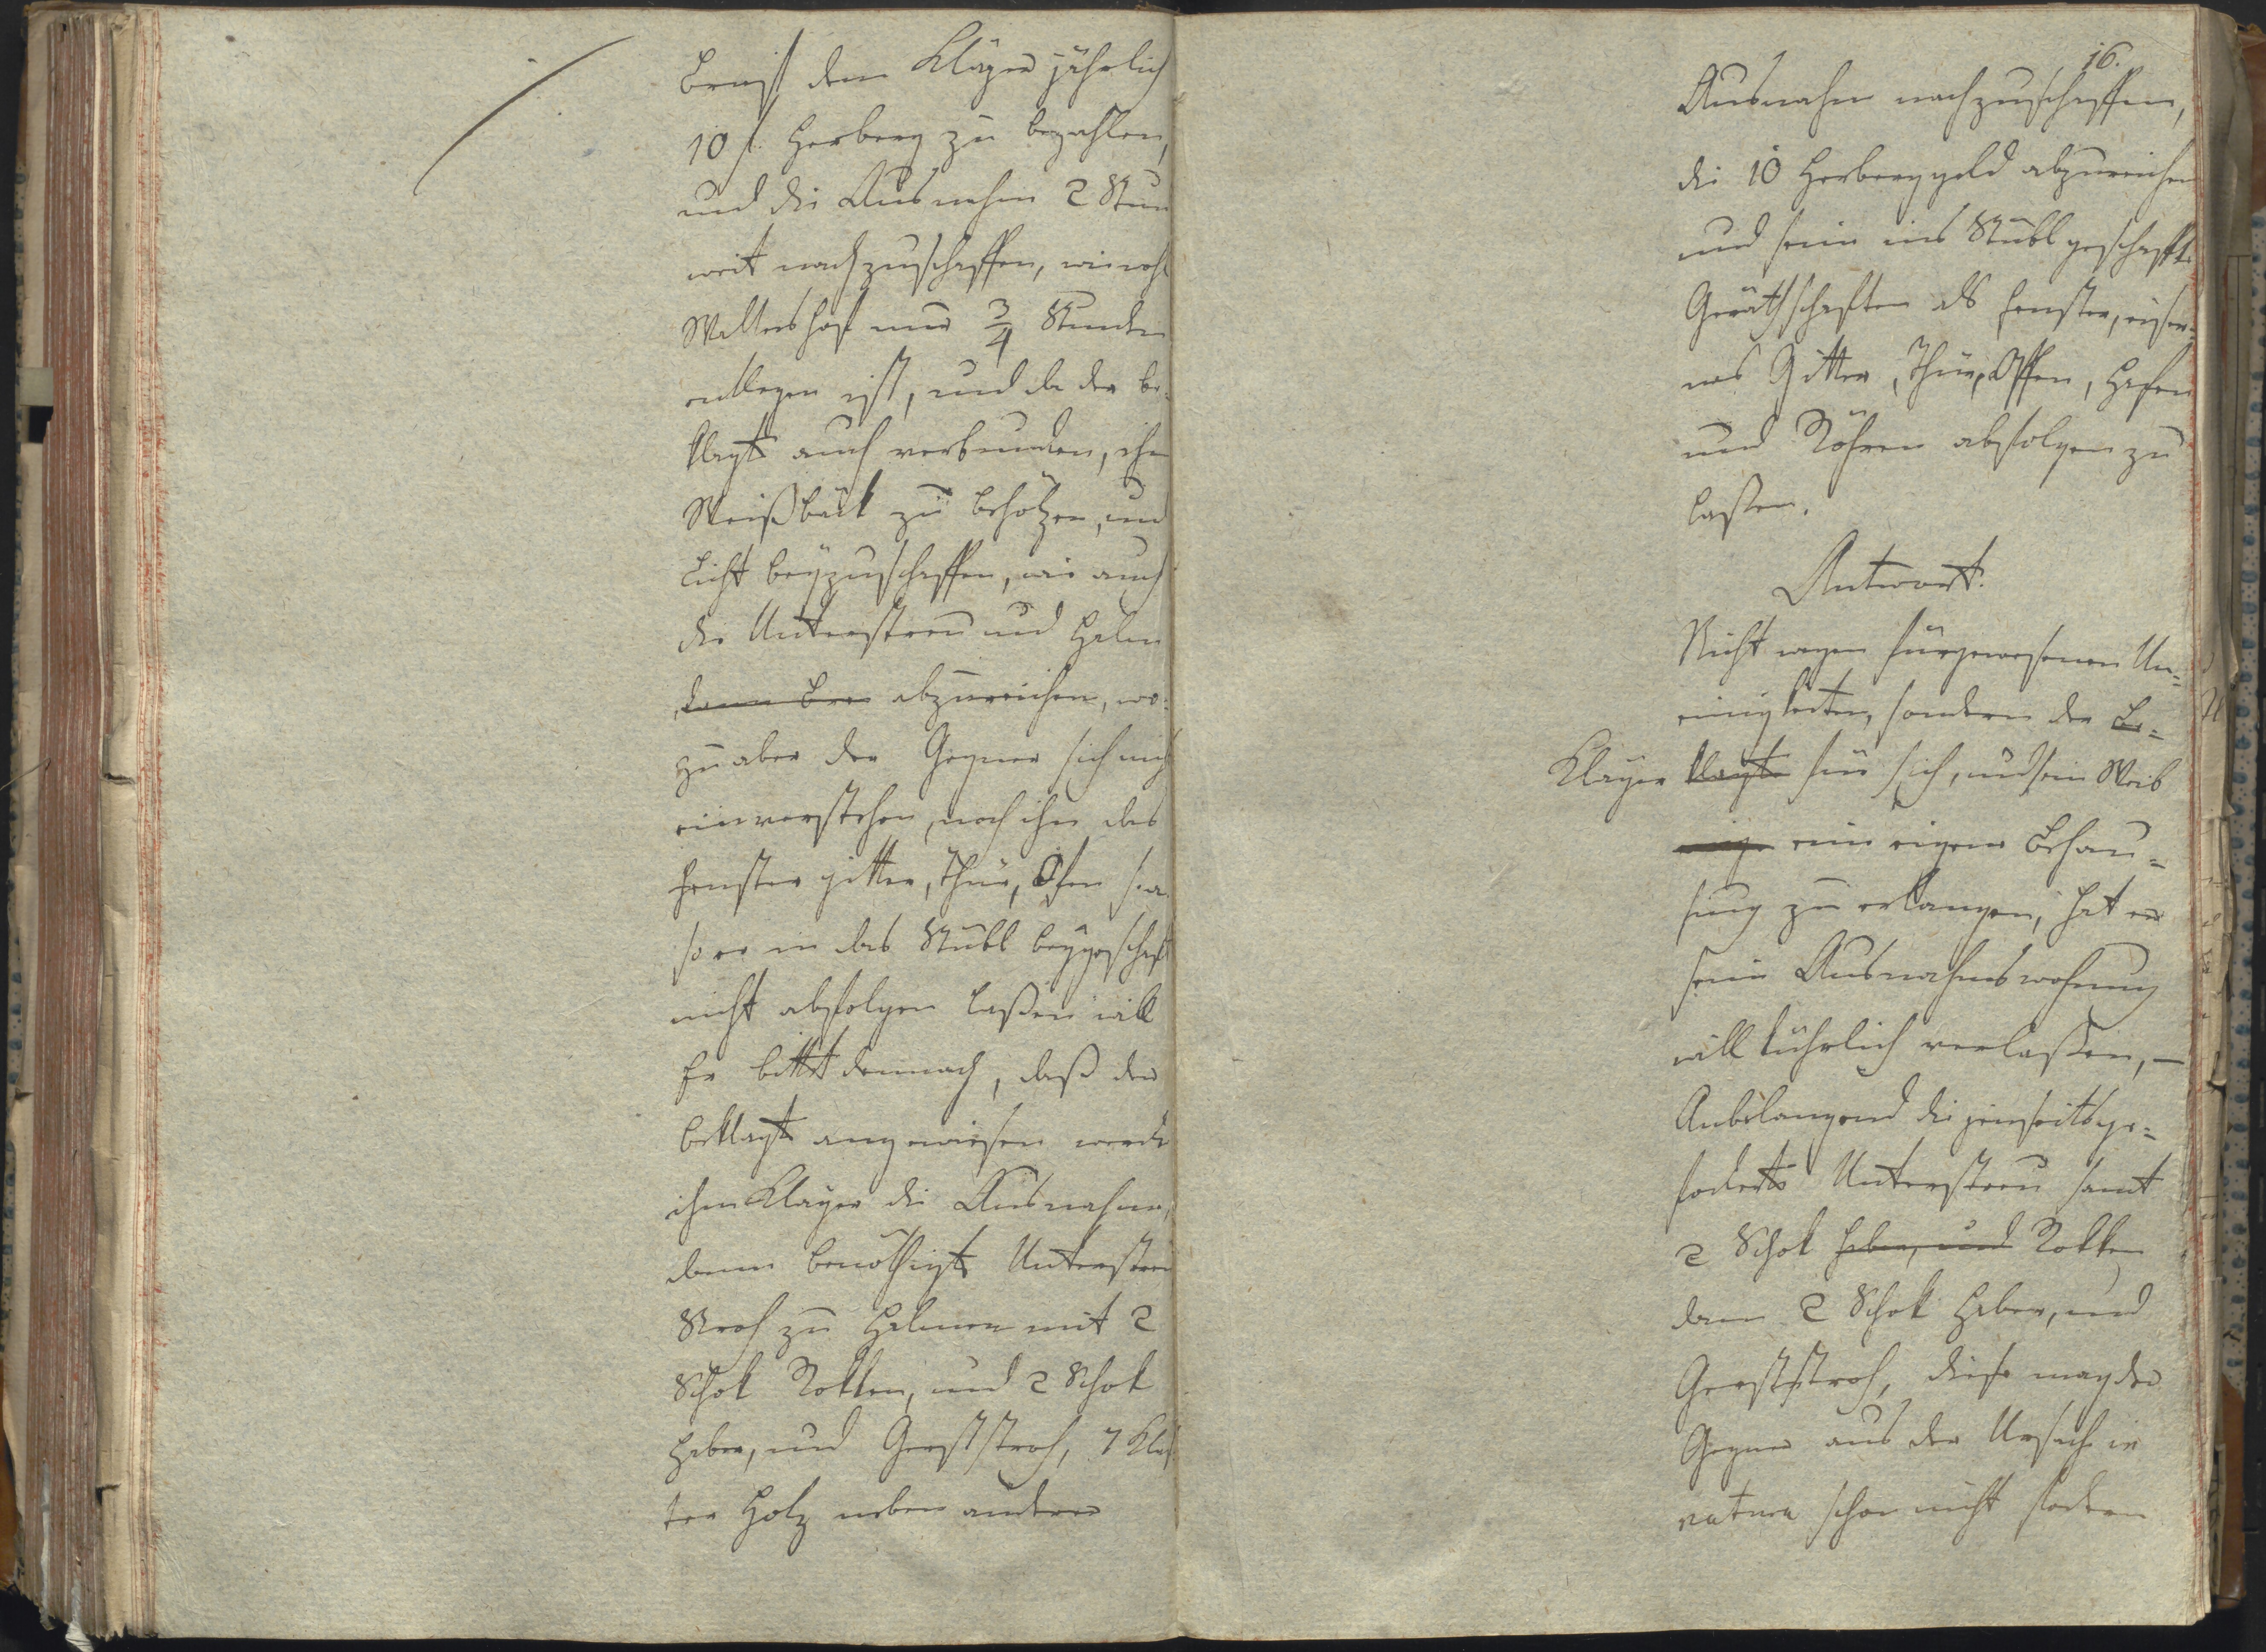 Brust dem Kläger jährlich
10 f. Herberg zu bezahlen,
und die Ausnahm 2 Stun
weit nachzuschaffen, wie wohl
Waltershof nur 3/4 Stunden
entlegen ist, und da der be-
klagte auch verbunden, ihn
zu behölzen, und
Licht beyzuschaffen, wie auch
die Unterstreu und Halm
abzureichen, wo-
zu aber der Gegner sich nich
einverstehen, noch ihm das
Fenster gitter, Thür, Ofen s. a.
so er in das Stübl beygeschaft
nicht abfolgen laßen will
Er bittet demnach, daß der
beklagte angewiesen werde
ihm Kläger die Ausnahm,
dann benöthigte Unterstreu
Stroh zu Halmen mit 2
Schok Rokken, und 2 Schok
Haber, und Gerststroh, 7 Klaf
ter Holz neben andern
16.
Ausnahm nachzuschaffen,
die 10 Herberggeld abzureichen
und seine ins Stübl geschaffte
Geräthschaften als Fenster, eiser-
nes Gitter, Thür, Offen, Hafen
und Röhren abfolgen zu
laßen.
Antwort.
Nicht wegen fürgewesenen Un=
einigkeiten, sondern der Be=
Kläger klagte für sich, und sein Weib
eine eigene Behau=
sung zu erlangen, hat er
seine Ausnahmswohnung
willkührlich verlaßen, –
Anbelangend die jenseits ge=
foderte Unterstreu samt
2 Schok Haber, und Rokken
dann 2 Schok Haber, und
Gerststroh, diese mag der
Gegner aus der Ursache in
natura schon nicht fodern